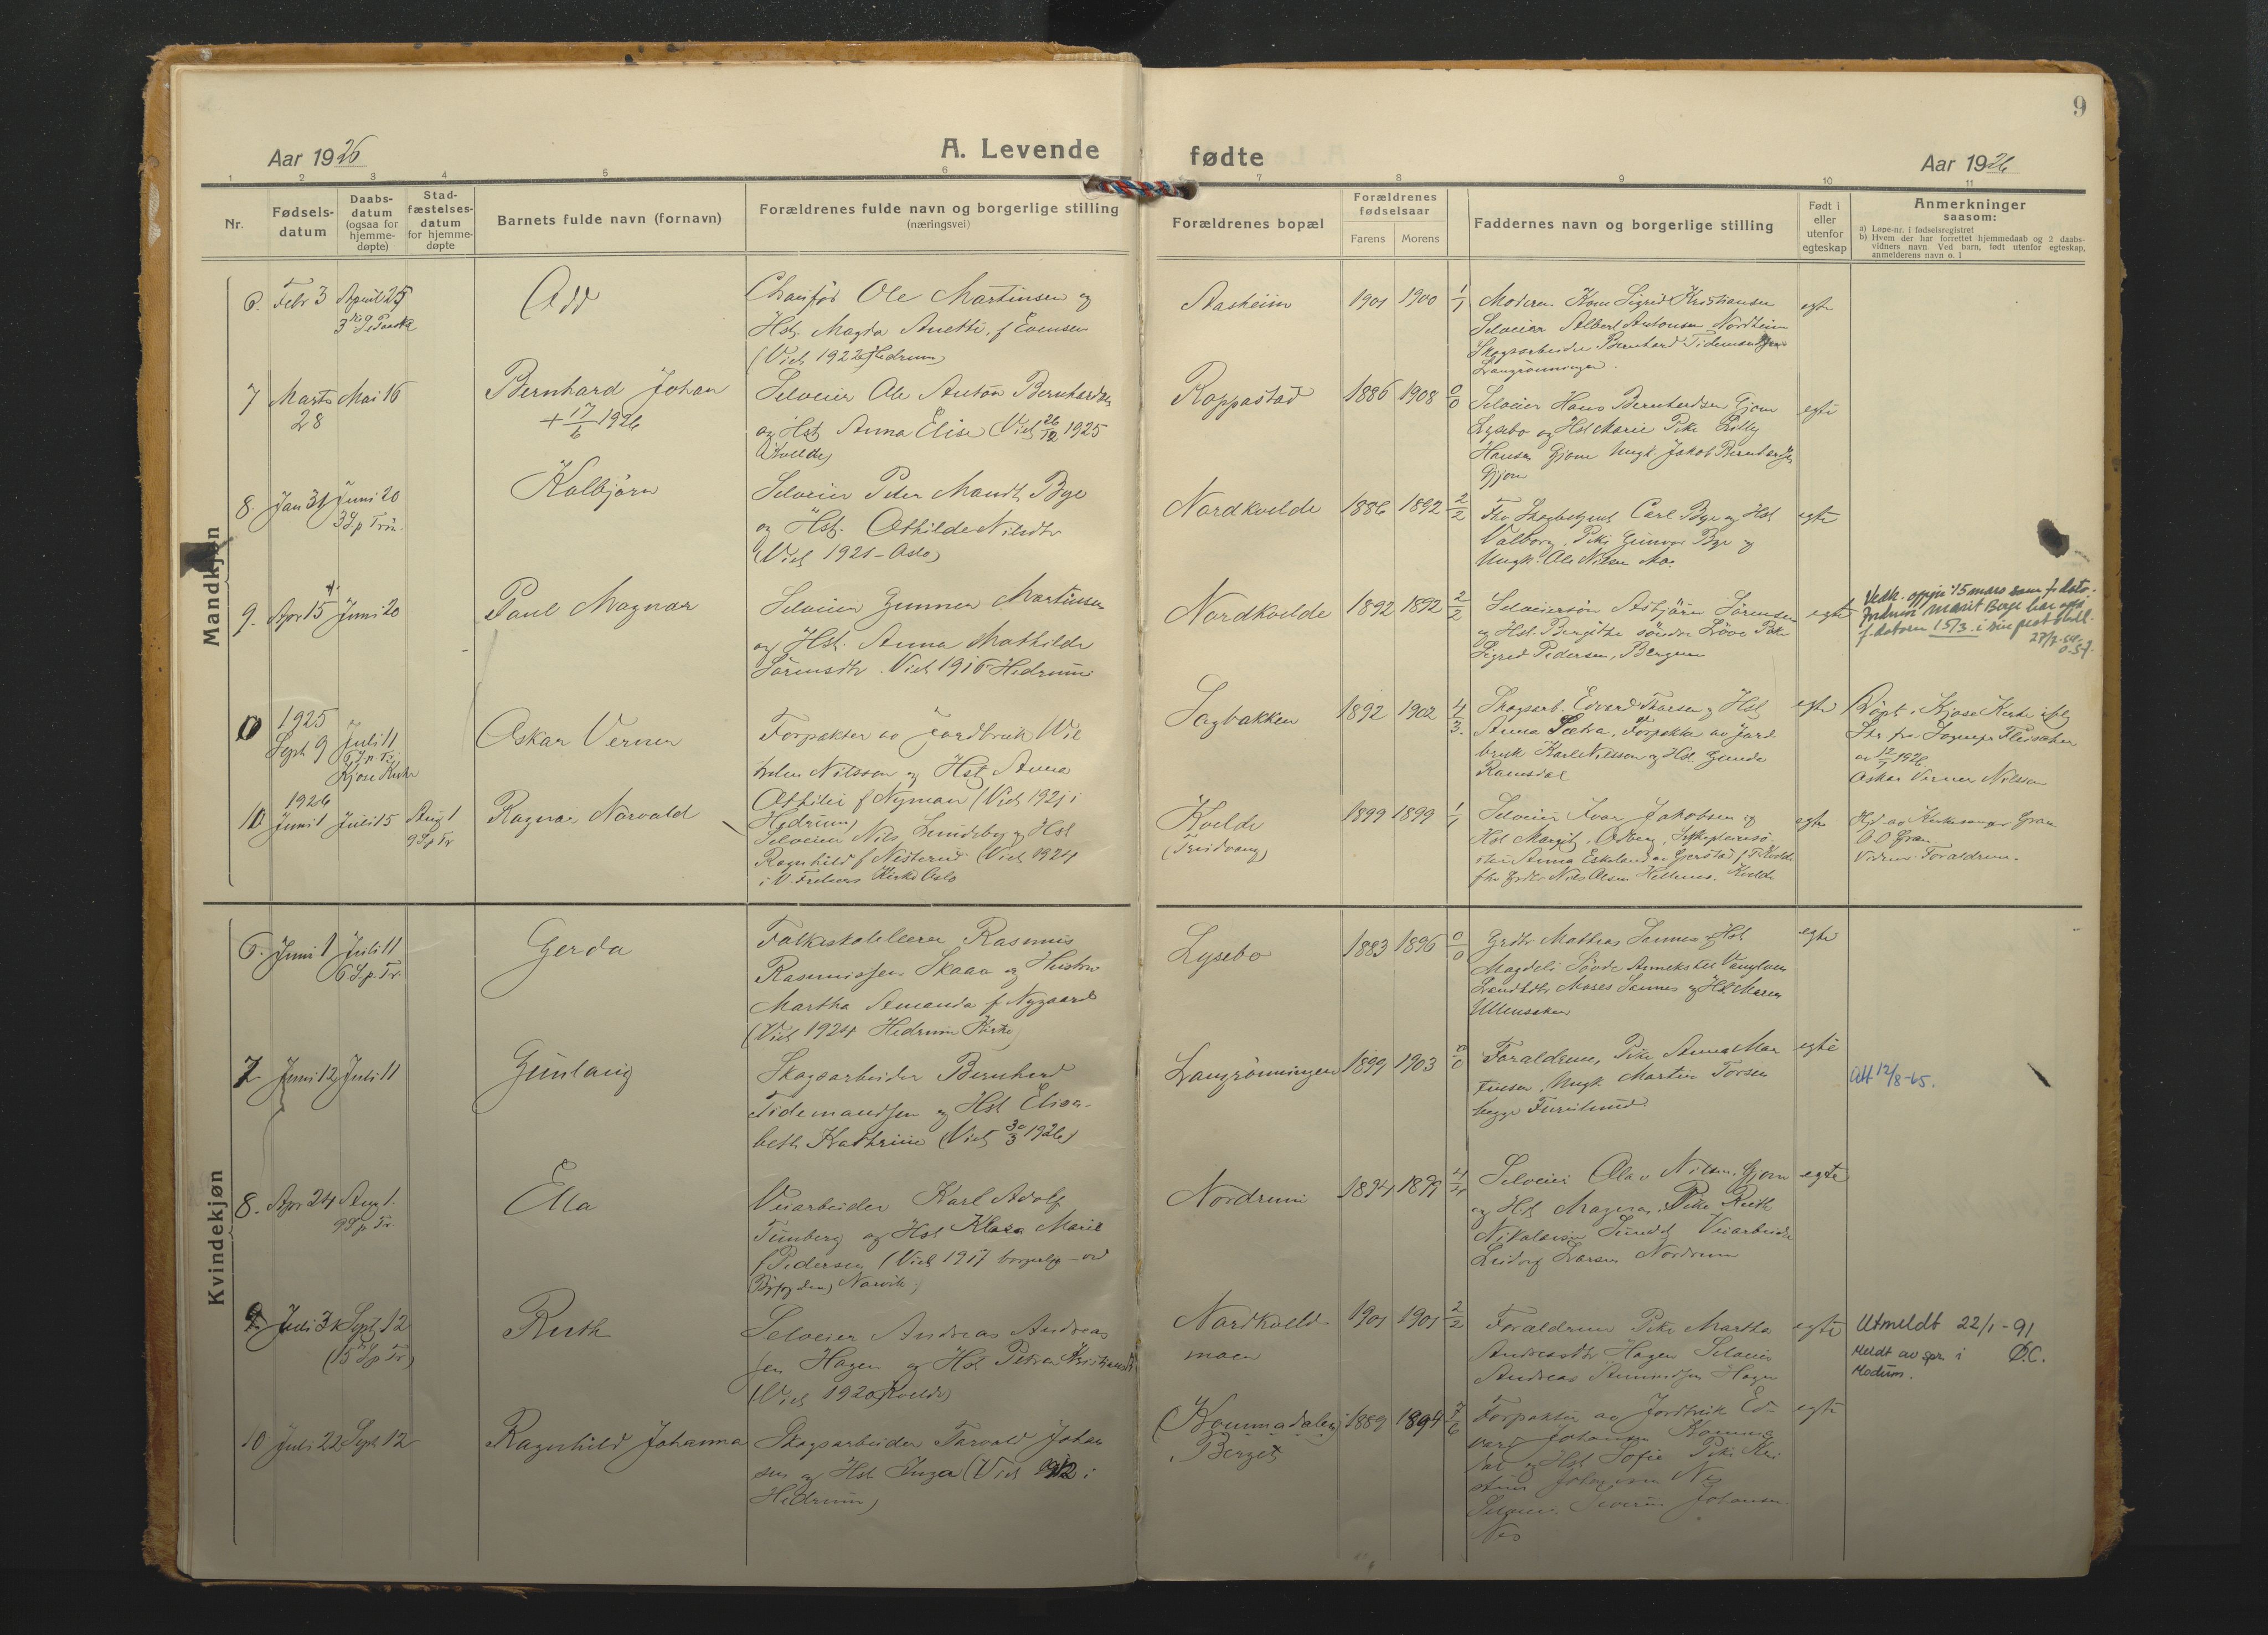 9
Aar 1926
A. Levende
fødte
Aar 1926
1 2 3 4 5 6 7 8 9 10 11
Nr.
Fødsels-
datum
Daabs-
datum
(ogsaa for
hjemme-
døpte)
Stad-
fæstelses-
datum
for hjemme-
døpte
Barnets fulde navn (fornavn)
Forældrenes fulde navn og borgerlige stilling
(næringsvei)
Forældrenes bopæl
Forældrenes
fødselsaar
Farens Morens
Faddernes navn og borgerlige stilling
Født i
eller
utenfor
egteskap
Anmerkninger
saasom:
a) Løpe-nr. i fødselsregistret
b) Hvem der har forrettet hjemmedaab og 2 daabs-
vidners navn. Ved barn, født utenfor egteskap,
anmelderens navn o. l
Mandkjøn
6. Febr 3 April 25
3 S. e Paaske
Odd
Chaufför Ole Martinsen og
Hst. Magda Anette, f Evensen
(Viet 1922 Hedrum)
Aasheim
1901 1900 1/1
Moderen Kone Sigrid Kristiansen
Selveier Albert Antonsen Nordheim
Skogsarbeider Bernhard Tidemandsen
Langrönningen.
egte
7 Marts Mai 16
28
Bernhard Johan
+ 17/6 1926
Selveier Ole Anton Bernhardsen
og Hst Anna Elise (Viet 26/12 1925
i Kvelde)
Roppestad
1886 1908 0/0
Selveier Hans Bernhardsen Gjone
Lysebo og Hst Marie Pike Lilly
Hansen Gjone Ungk. Jakob Bernhardsen
Gjone
egte
8. Jan 31 Juni 20
3 S. p Trin.
Kolbjörn
Selveier Peder Mandt Bye
og Hst. Othilde Nilsdtr
(Viet 1921 - Oslo)
Nordkvelde
1886 1892 2/2
Fhv Skogbetjent Carl Bye og Hst
Valborg. Pike Gunvor Bye og
Ungk. Ole Nilsen Moe.
egte
9. Apr 15 Juni 20
Paul Magnar
Selveier Gunnar Martinsen
og Hst. Anna Mathilde
Sörensdtr. Viet 1916 Hedrum
Nordkvelde
1892 1892 2/2
Selveiersön Asbjörn Sörensen
og Hst. Bergithe söndre Löve Pike
Sigrid Pedersen, Bergene
egte
Vedk. oppgir 15 mars som f. dato.
Jordmor Marit Berge har opp
f. datoen 15/3. i sin protokoll.
10 1925
Sept 9 Juli 11
6 S. p. Tr.
Kjose Kirke
Oskar Verner
Forpakter av Jordbruk Wil
helm Nilsson og Hst Anna
Othilie f Nyman (Viet 1921 i
Hedrum)
Sagbakken
1892 1902 4/3.
Skogsarb. Edvard Thorsen og Hst
Anna Sætra, Forpakter av Jord
bruk Karl Nilsson og Hst Gunda
Ramsdal
egte
Döpt i Kjose Kirke iflg
Skr. fra Sognepr Fleischer
av 12/7 1926.
Oskar Verner Nilsson
11 1926
Juni 1 Juli 5 Aug 1
9 S p Tr
Ragnar Norvald
Selveier Nils Sundeby og Hst
Ragnhild f Nesterud (Viet 1924
i V. Frelsers Kirke Oslo
Kvelde
1899 1899 1/1
Selveier Ivar Jakobsen og
Hst Margit, Odberg,
Anna Eskeland
Nils Olsen Hellenes. Kvelde
egte
Hjd. av Kirkesanger Gran
O. O Gran.
Vidner. Forældrene.
Kvindekjøn
6. Juni 1 Juli 11
6 S. p. Tr.
Gerda
Folkeskolelærer Rasmus
Rasmussen Skaar og Hustru
Martha Amanda f Nygaard
(Viet 1924 Hedrum Kirke)
Lysebo
1883 1896 0/0
Grdbr Mathias Sannes og Hst
Magdeli
Landbr. Moses Sannes og Hst Maren
Ullensaker
egte
7. Juni 12 Juli 11
Gunlaug
Skogsarbeider Bernhard
Tidemandsen og Hst Elisa-
beth Kathrine (Viet 30/3 1926)
Langrönningen
1899 1903 0/0
Forældrene, Pike Anna Mar
tinsen, Ungk. Martin Torsen
begge Furulund.
egte
Att 12/8-65.
8. Apr 24 Aug 1.
9 S p Tr.
Ella
Veiarbeider Karl Adolf
Tunberg og Hst Klara Marie
f Pedersen (Viet 1917 borgerlig - ved
Byfogden, Narvik)
Nordrum
1894 1899 4/4
Selveier Olav Nilsen Gjone
og Hst Magna. Pike Ruth
Nikolaisen Sundet Veiarbeider
Leidorf Larsen Nordrum
egte
9. Juli 31 Sept 12
(15 S p Tr)
Ruth
Selveier Andreas Andreas
sen Hagen og Hst Petra Kristiansdtr
(Viet 1920 Kvelde)
Nordkveld-
moen
1901 1901 2/2
Forældrene Pike Martha
Andreasdtr Hagen Selveier
Andreas Amundsen Hagen
egte
Utmeldt 22/1-91
Meldt av spr. i Ø.C.
Modum.
10 Juli 22 Sept 12
Ragnhild Johanna
Skogsarbeider Torvald Johan
sen og Hst Inga (Viet 1912 i
Hedrum)
(Kommadalen)
Berget
1889 1894 7/6
Forpakter av Jordbruk Ed-
vard Johansen Komma
dal og Hst Sofie Pike Kri
stine Johansen Nes
Selveier Severin Johansen
Nes
egte